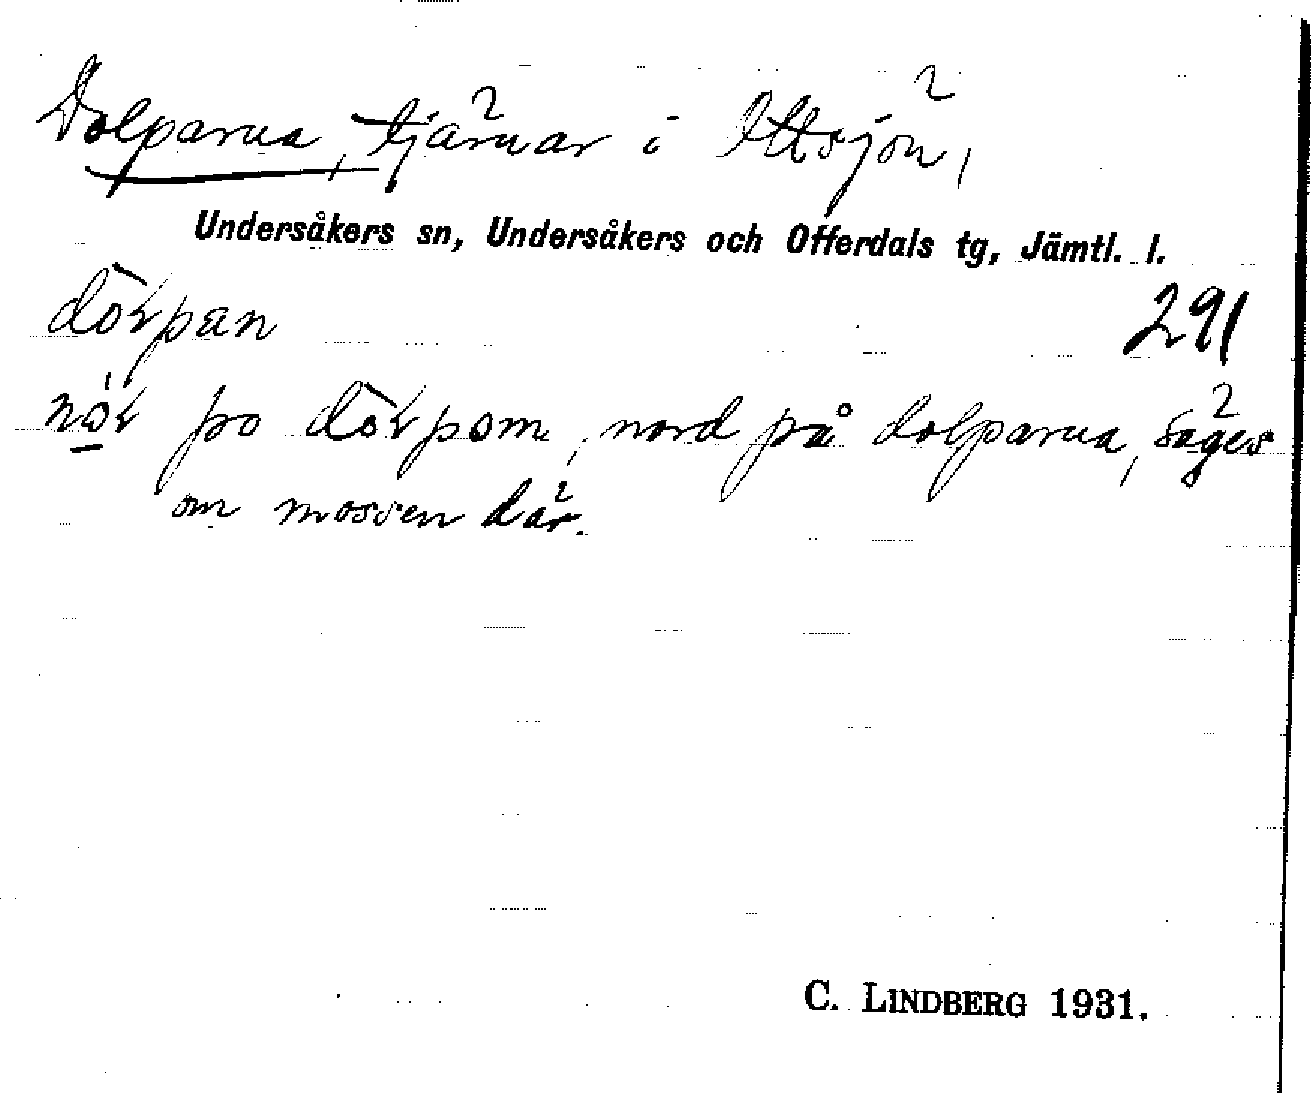 Dolparna, tjärnar i Ottsjön,
Undersåkers sn, Undersåkers och Offerdals tg, Jämtl. l.
dörpan 291
nör po dörpom, nord på dolparna, säges
om mossen där.
C. LINDBERG 1931.